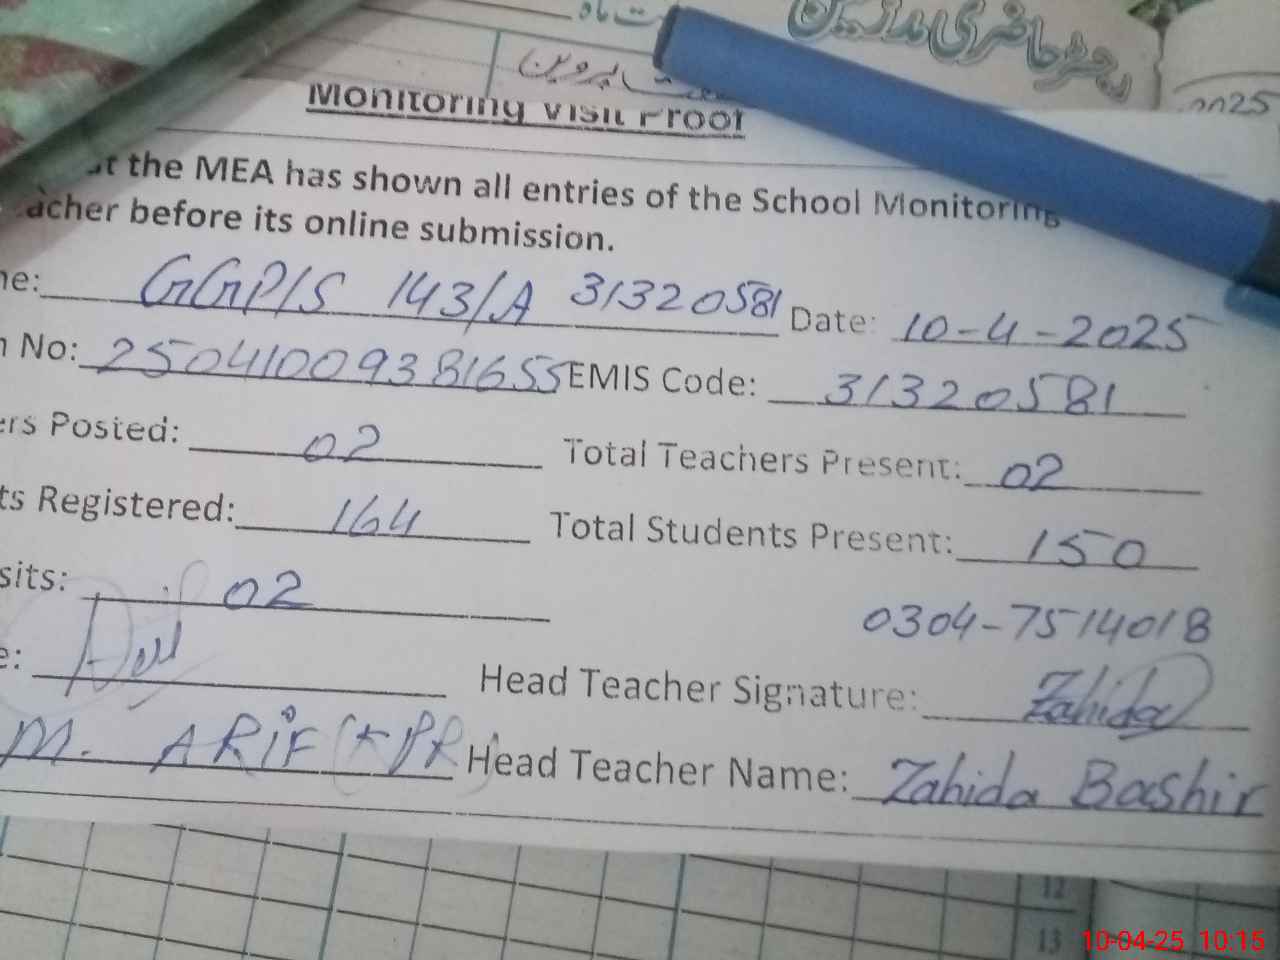 رجسٹر حاضری مدرسین
پروین
2025
Monitoring Visit Proof
the MEA has shown all entries of the School Monitoring
before its online submission.
GGP/S 143/A 31320581 Date: 10-4-2025
No: 25041009381655 EMIS Code: 31320581
Posted: 02 Total Teachers Present: 02
Registered: 164 Total Students Present: 150
02
0304-7514018
Head Teacher Signature: Zahida
M. ARiF Head Teacher Name: Zahida Bashir
12
13
10-04-25 10:15